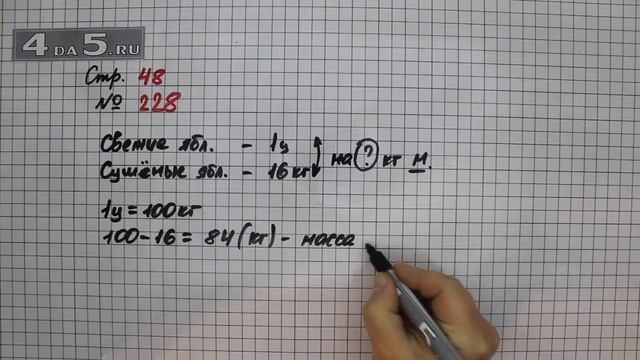 4ДА5.RU
Стр. 48
№ 228
Свежие ябл. - 1ц
на ? кг м.
Сушёные ябл. - 16 кг
1ц = 100кг
100-16 = 84 (кг) - масса